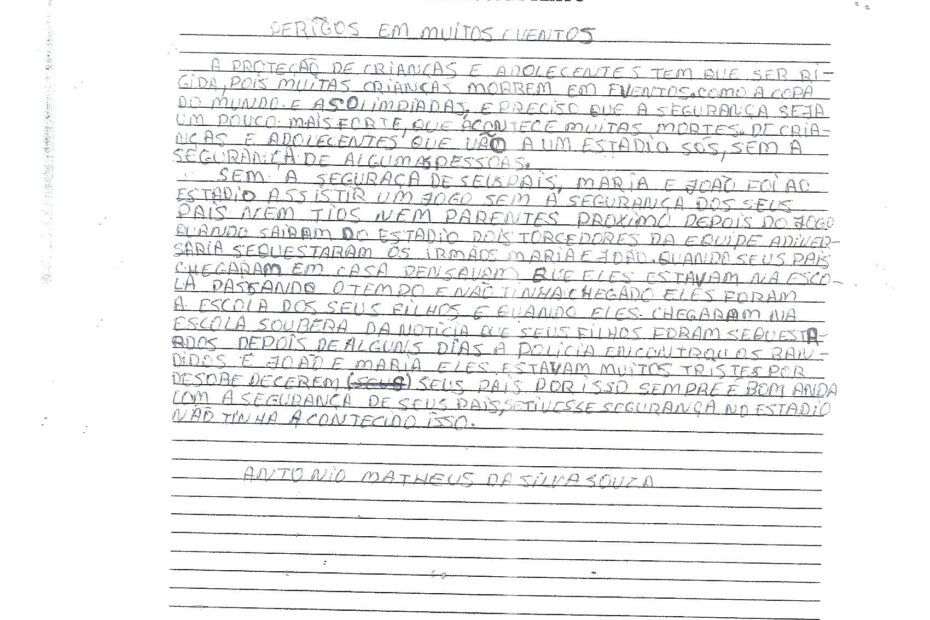 PERIGOS EM MUITOS EVENTOS
A PROTEÇÃO DE CRIANÇAS E ADOLECENTES TEM QUE SER RI-
GIDA, POIS MUITAS CRIANÇAS MORREM EM EVENTOS. COMO A COPA
DO MUNDO E AS OLIMPIADAS. E PRECISO QUE A SEGURANÇA SEJA
UM POUCO MAIS FORTE, QUE ACONTECE MUITAS MORTES. DE CRIA-
NÇAS E ADOLECENTES QUE VÃO A UM ESTADIO SOS, SEM A
SEGURANÇA DE ALGUMAS PESSOAS.
SEM A SEGURAÇA DE SEUS PAIS, MARIA E JOÃO FOI AO
ESTADIO ASSISTIR UM JOGO SEM A SEGURANÇA DOS SEUS
PAIS NEM TIOS NEM PARENTES PROXIMO DEPOIS DO JOGO
QUANDO SAIRAM DO ESTADIO DOIS TORCEDORES DA EQUIPE ADIVER-
SARIA SEQUESTARAM OS IRMÃOS MARIA E JOÃO. QUANDO SEUS PAIS
CHEGARAM EM CASA PENSAVAM QUE ELES ESTAVAM NA ESCO-
LA PASSANDO O TEMPO E NÃO TINHA CHEGADO ELES FORAM
A ESCOLA DOS SEUS FILHOS E QUANDO ELES CHEGARAM NA
ESCOLA SOUBERA DA NOTÍCIA QUE SEUS FILHOS FORAM SEQUESTA-
RDOS DEPOIS DE ALGUNS DIAS A POLICIA ENCONTROU OS BAN-
DIDOS E JOÃO E MARIA ELES ESTAVAM MUITOS TRISTES POR
DESOBEDECEREM (SEUS) SEUS PAIS POR ISSO SEMPRE É BOM ANDA
COM A SEGURANÇA DE SEUS PAIS, SE TIVESSE SEGURANÇA NO ESTADIO
NÃO TINHA ACONTECIDO ISSO.
ANTONIO MATHEUS DA SILVA SOUZA